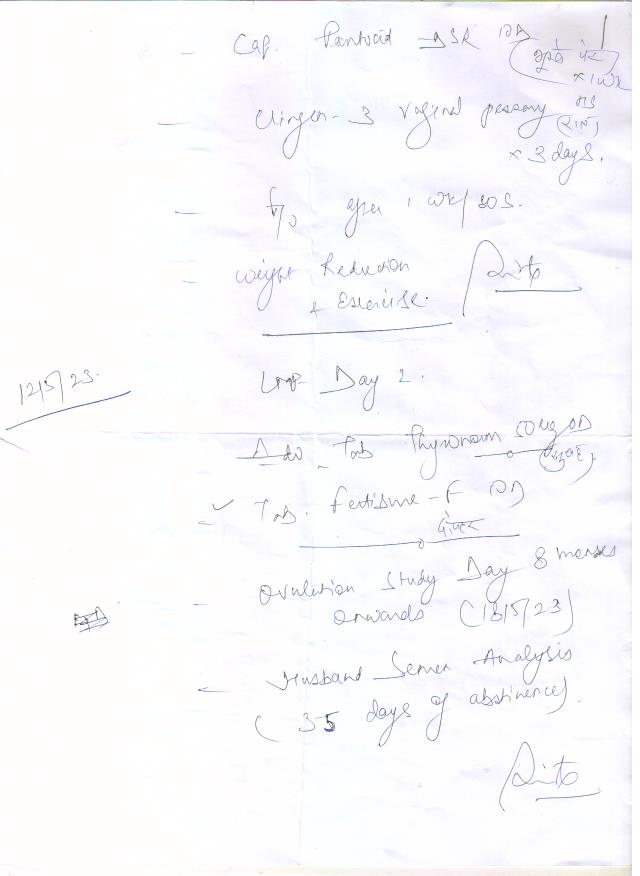 - Cap. Pantocid - DSR OD
भूखे पेट
x 1 wk
- Clingen - 3 vaginal pessary HS
(रात)
x 3 days.
- f/u after 1 wk / SOS.
- Weight Reduction
+ Exercise.
12/5/23.
LMP Day 2.
Adv - Tab Thyronorm 50 ug OD
(सुबह)
- Tab. Fertisure - F OD
- Ovulation Study Day 8 menses
onwards (18/5/23)
- Husband Semen Analysis
( 35 days of abstinence).